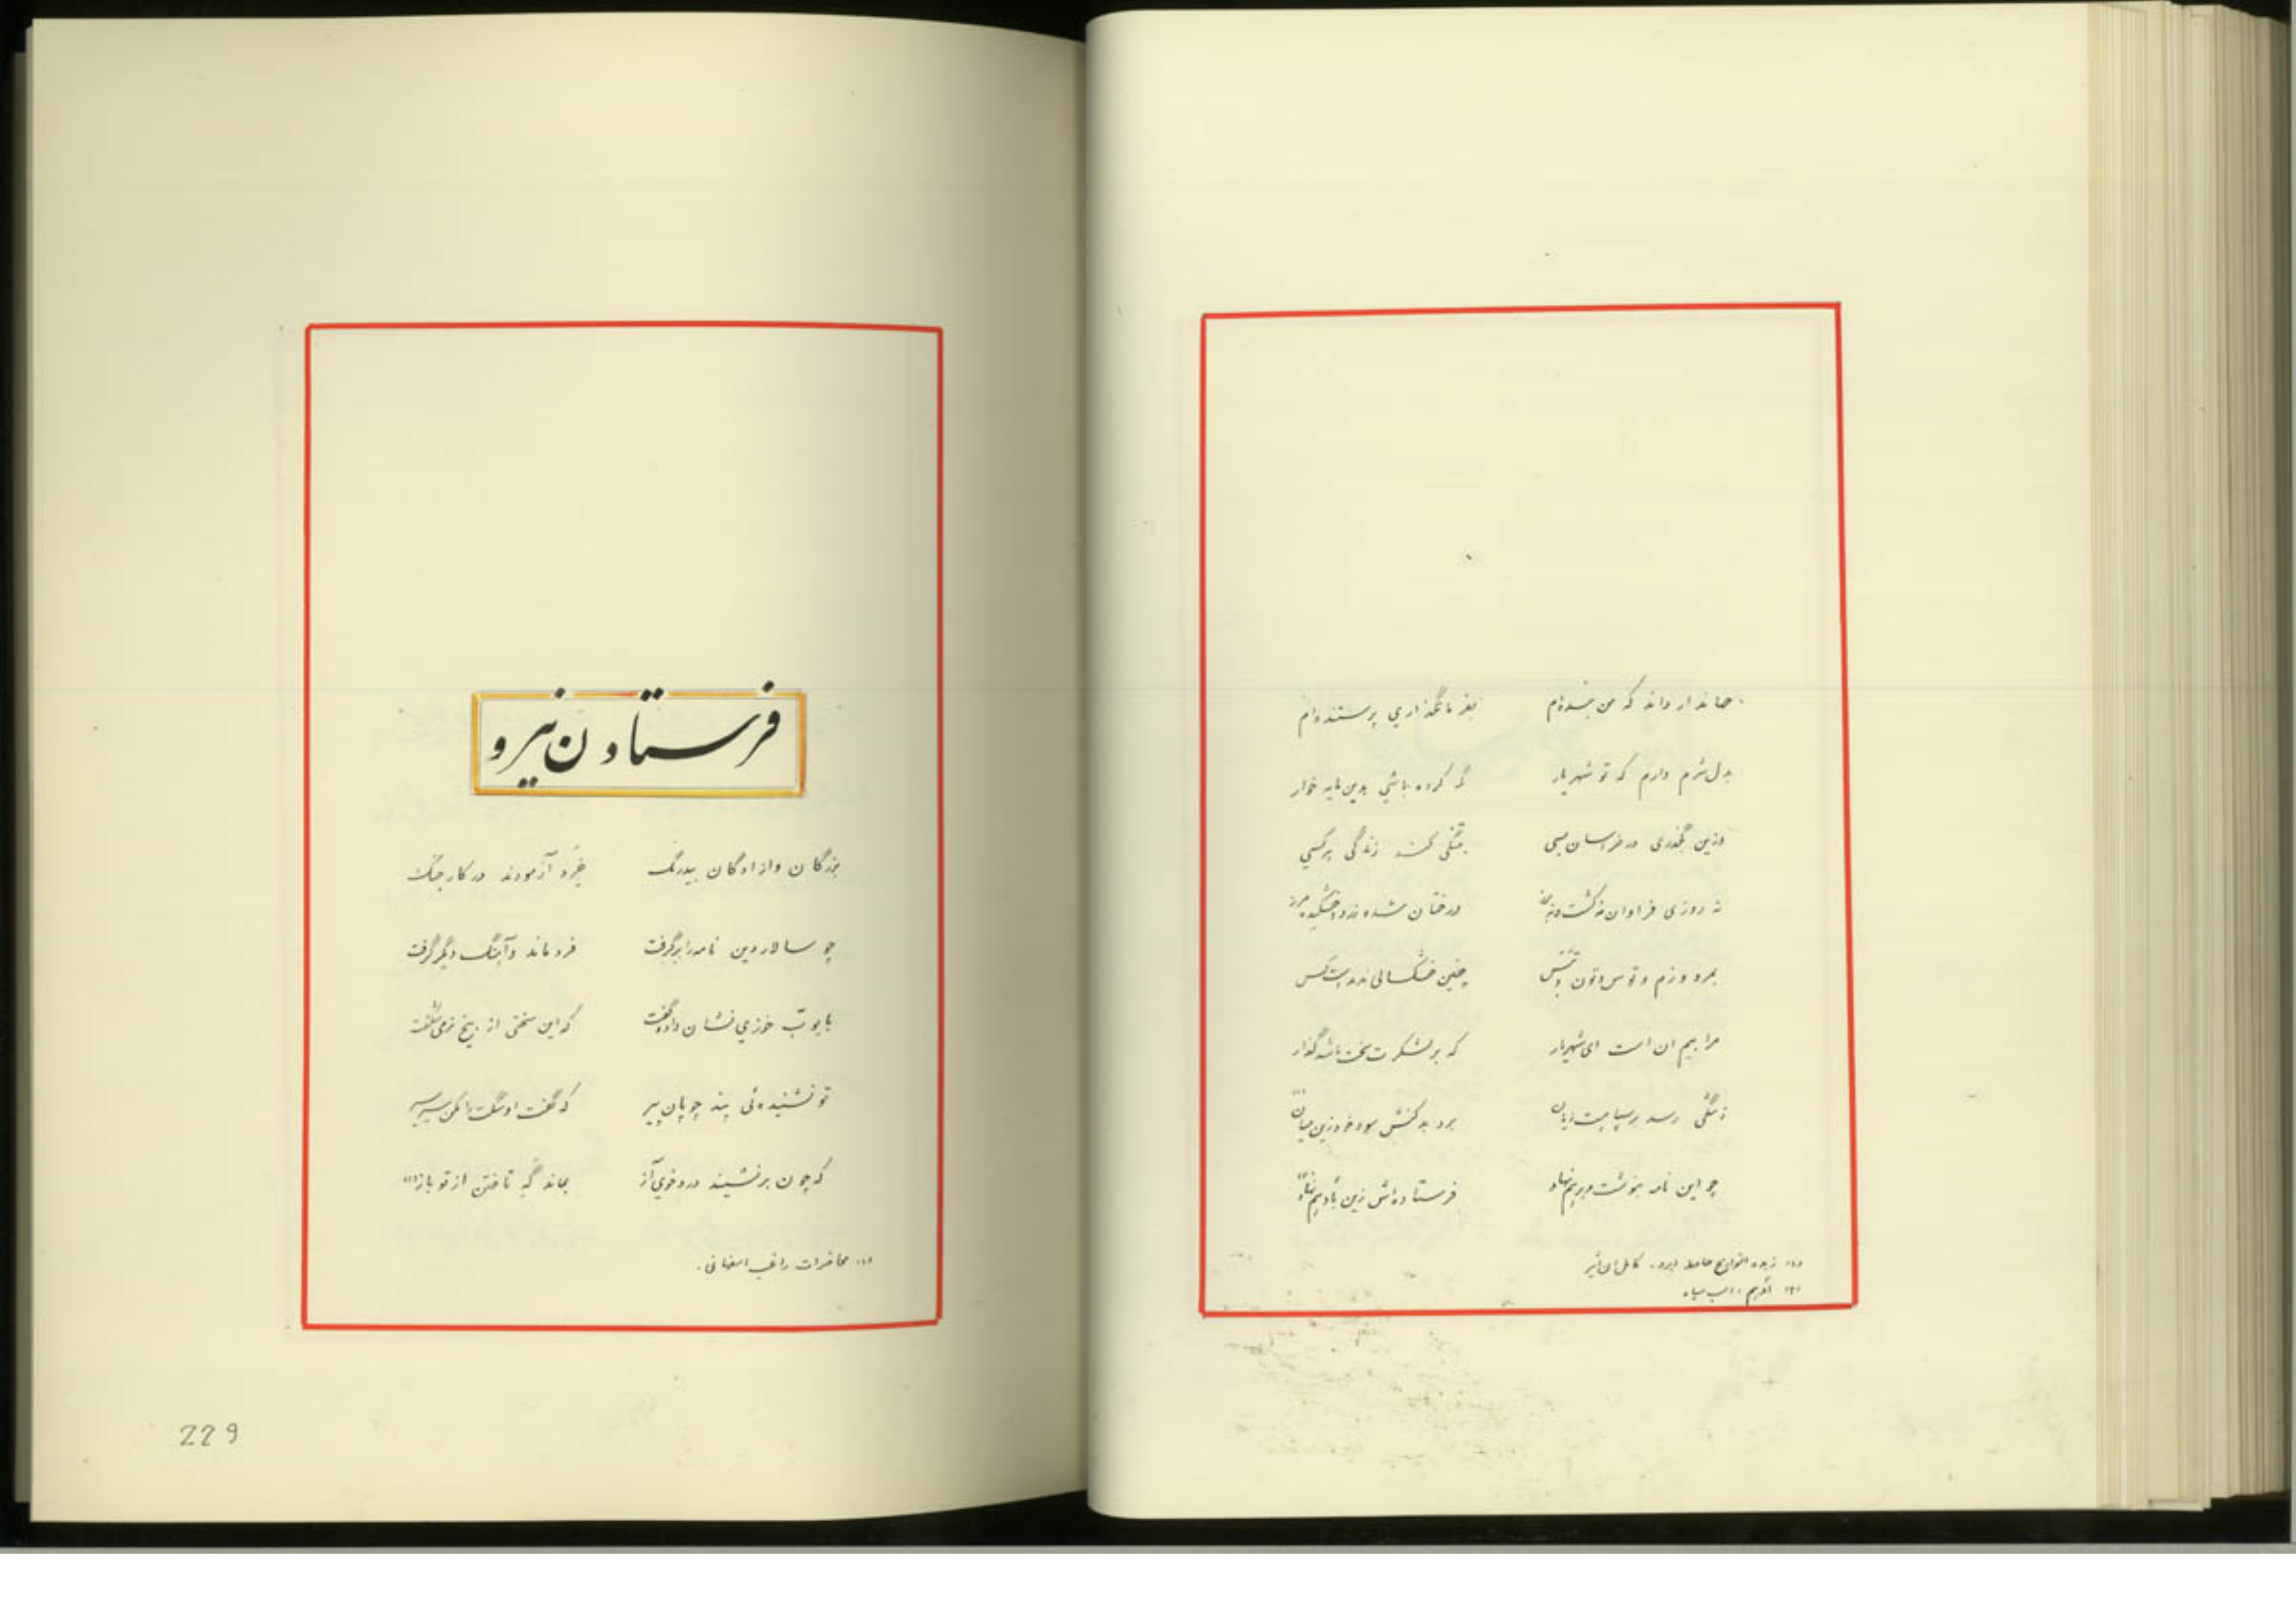 جهاندار داند که من بنده‌ام بفرمانگذاری پرستنده‌ام
بدل شرم دارم که تو شهریار گر کرده باشی بدین مایه خوار
وزین بگذری در خراسان بسی بتنگی کند زندگی هر کسی
نه روزی فراوان نه کشت و نه درختان شده زرد و خشکیده مرز
بمرو و رزم و توس و تون و چنین خشکسالی ندیدست کس
مرا بیم ان است ای شهریار که بر لشکرت سخت باشد گذار
ز تنگی رسد بر سپاهت زیان برد بدکنش سود خود زین میان
چو این نامه بنوشت و برهم نهاد فرستاده‌اش زین
(۱) زبدة التواریخ حافظ ابرو. کامل ابن اثیر
(۲) اسب سیاه
فرستادن نیرو
بزرگان و ازادگان بیدرنگ خرد آزمودند در کار جنگ
چو سالار دین نامه را برگرفت فرو ماند و آهنگ دیگر گرفت
بایوب خوزی نشان داد و گفت که این سختی از بیخ
تو نشنیده‌ئی پند چوپان پیر که گفت او سگت را مکن سیر سیر
که چون برنشیند در و خوی آز بماند گه تاختن از تو باز (۱)
(۱) محاضرات راغب اصفهانی.
229